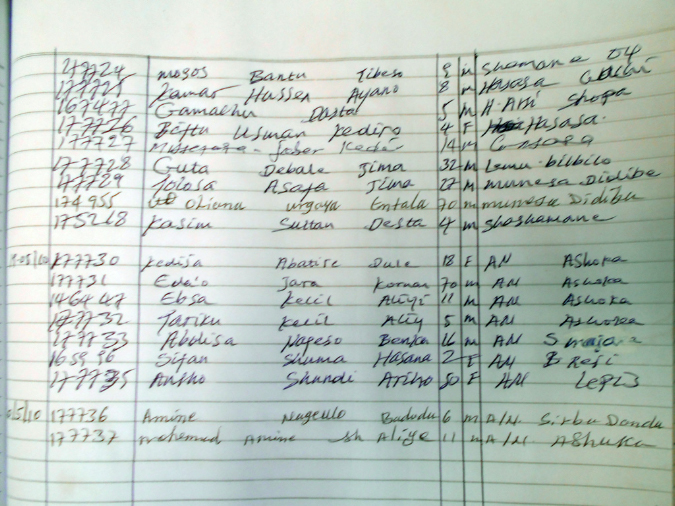 177724 mogos Bantu Tibeso 9 m Shamana 04
177725 Kamar Hussen Ayano 8 m Hasasa
167477 Gamachu Dastal 5 m H. Ami Shopa
177726 Usman Kediro 4 F Hasasa
177727 Kedir 14 m
177728 Guta Debale Jima 32 m Lemu-bilbilo
177729 Tolosa Asafa Jima 27 m munesa Didiba
174955 Oliana urgaya Entala 70 m munesa Didibu
175218 Kasim Sultan Desta 4 m Shashamane
177730 Kedija Abarire Dule 18 F AN Ashoka
177731 Edaio Jara Kornan 70 m AN Ashoka
146447 Ebsa Kelil Aliyi 11 m AN Ashoka
177732 Tariku Kelil Aliy 5 m AN Ashoka
177733 Abdisa Napeso Benka 16 m AN
165956 Sifan Shuma Hasana 2 F AN B Reji
177735 Ansho Shundi Ariho 50 F AN
0/5/10 177736 Amine Nugeulo Badodu 6 m A/N. Sirbu Dandu
177737 mohemud Amine sh Aliye 11 m A/N Ashuka